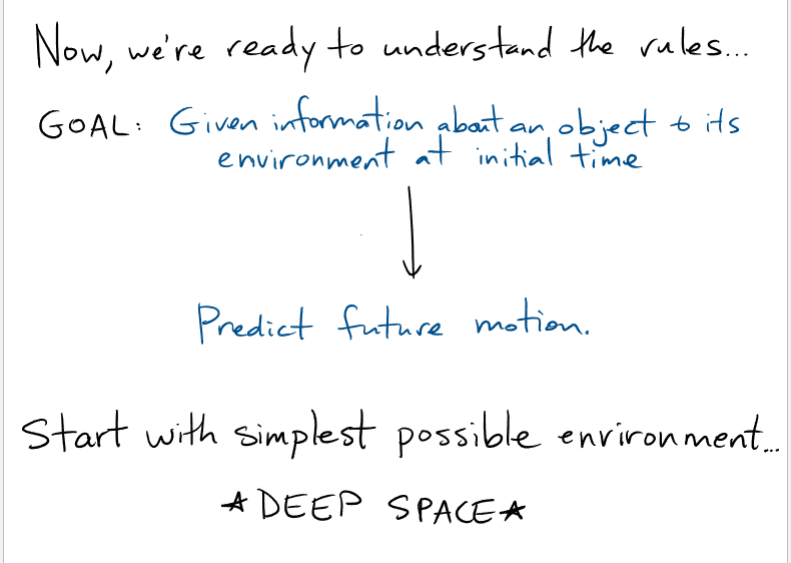 Now, we're ready to understand the rules...
GOAL: Given information about an object & its
environment at initial time
Predict future motion.
Start with simplest possible environment...
★DEEP SPACE★